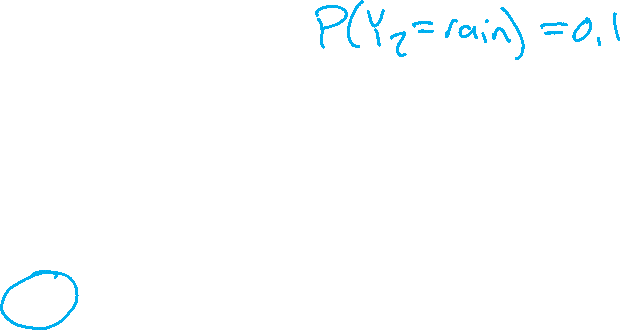 P(Y₂=rain) = 0.1